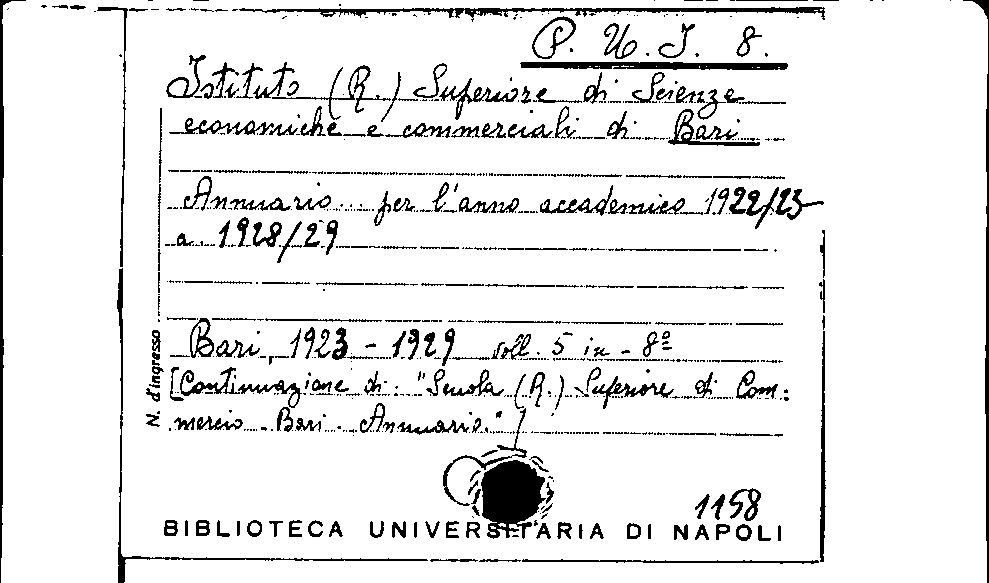 P. U. I. 8.
Istituto (R.) Superiore di Scienze
economiche e commerciali di Bari
Annuario... per l'anno accademico 1922/23
a 1928/29
Bari, 1923 - 1929 voll. 5 in - 8º
[Continuazione di: "Scuola (R.) Superiore di Com:
mercio - Bari - Annuario."]
N. d'ingresso
1158
BIBLIOTECA UNIVERSITARIA DI NAPOLI